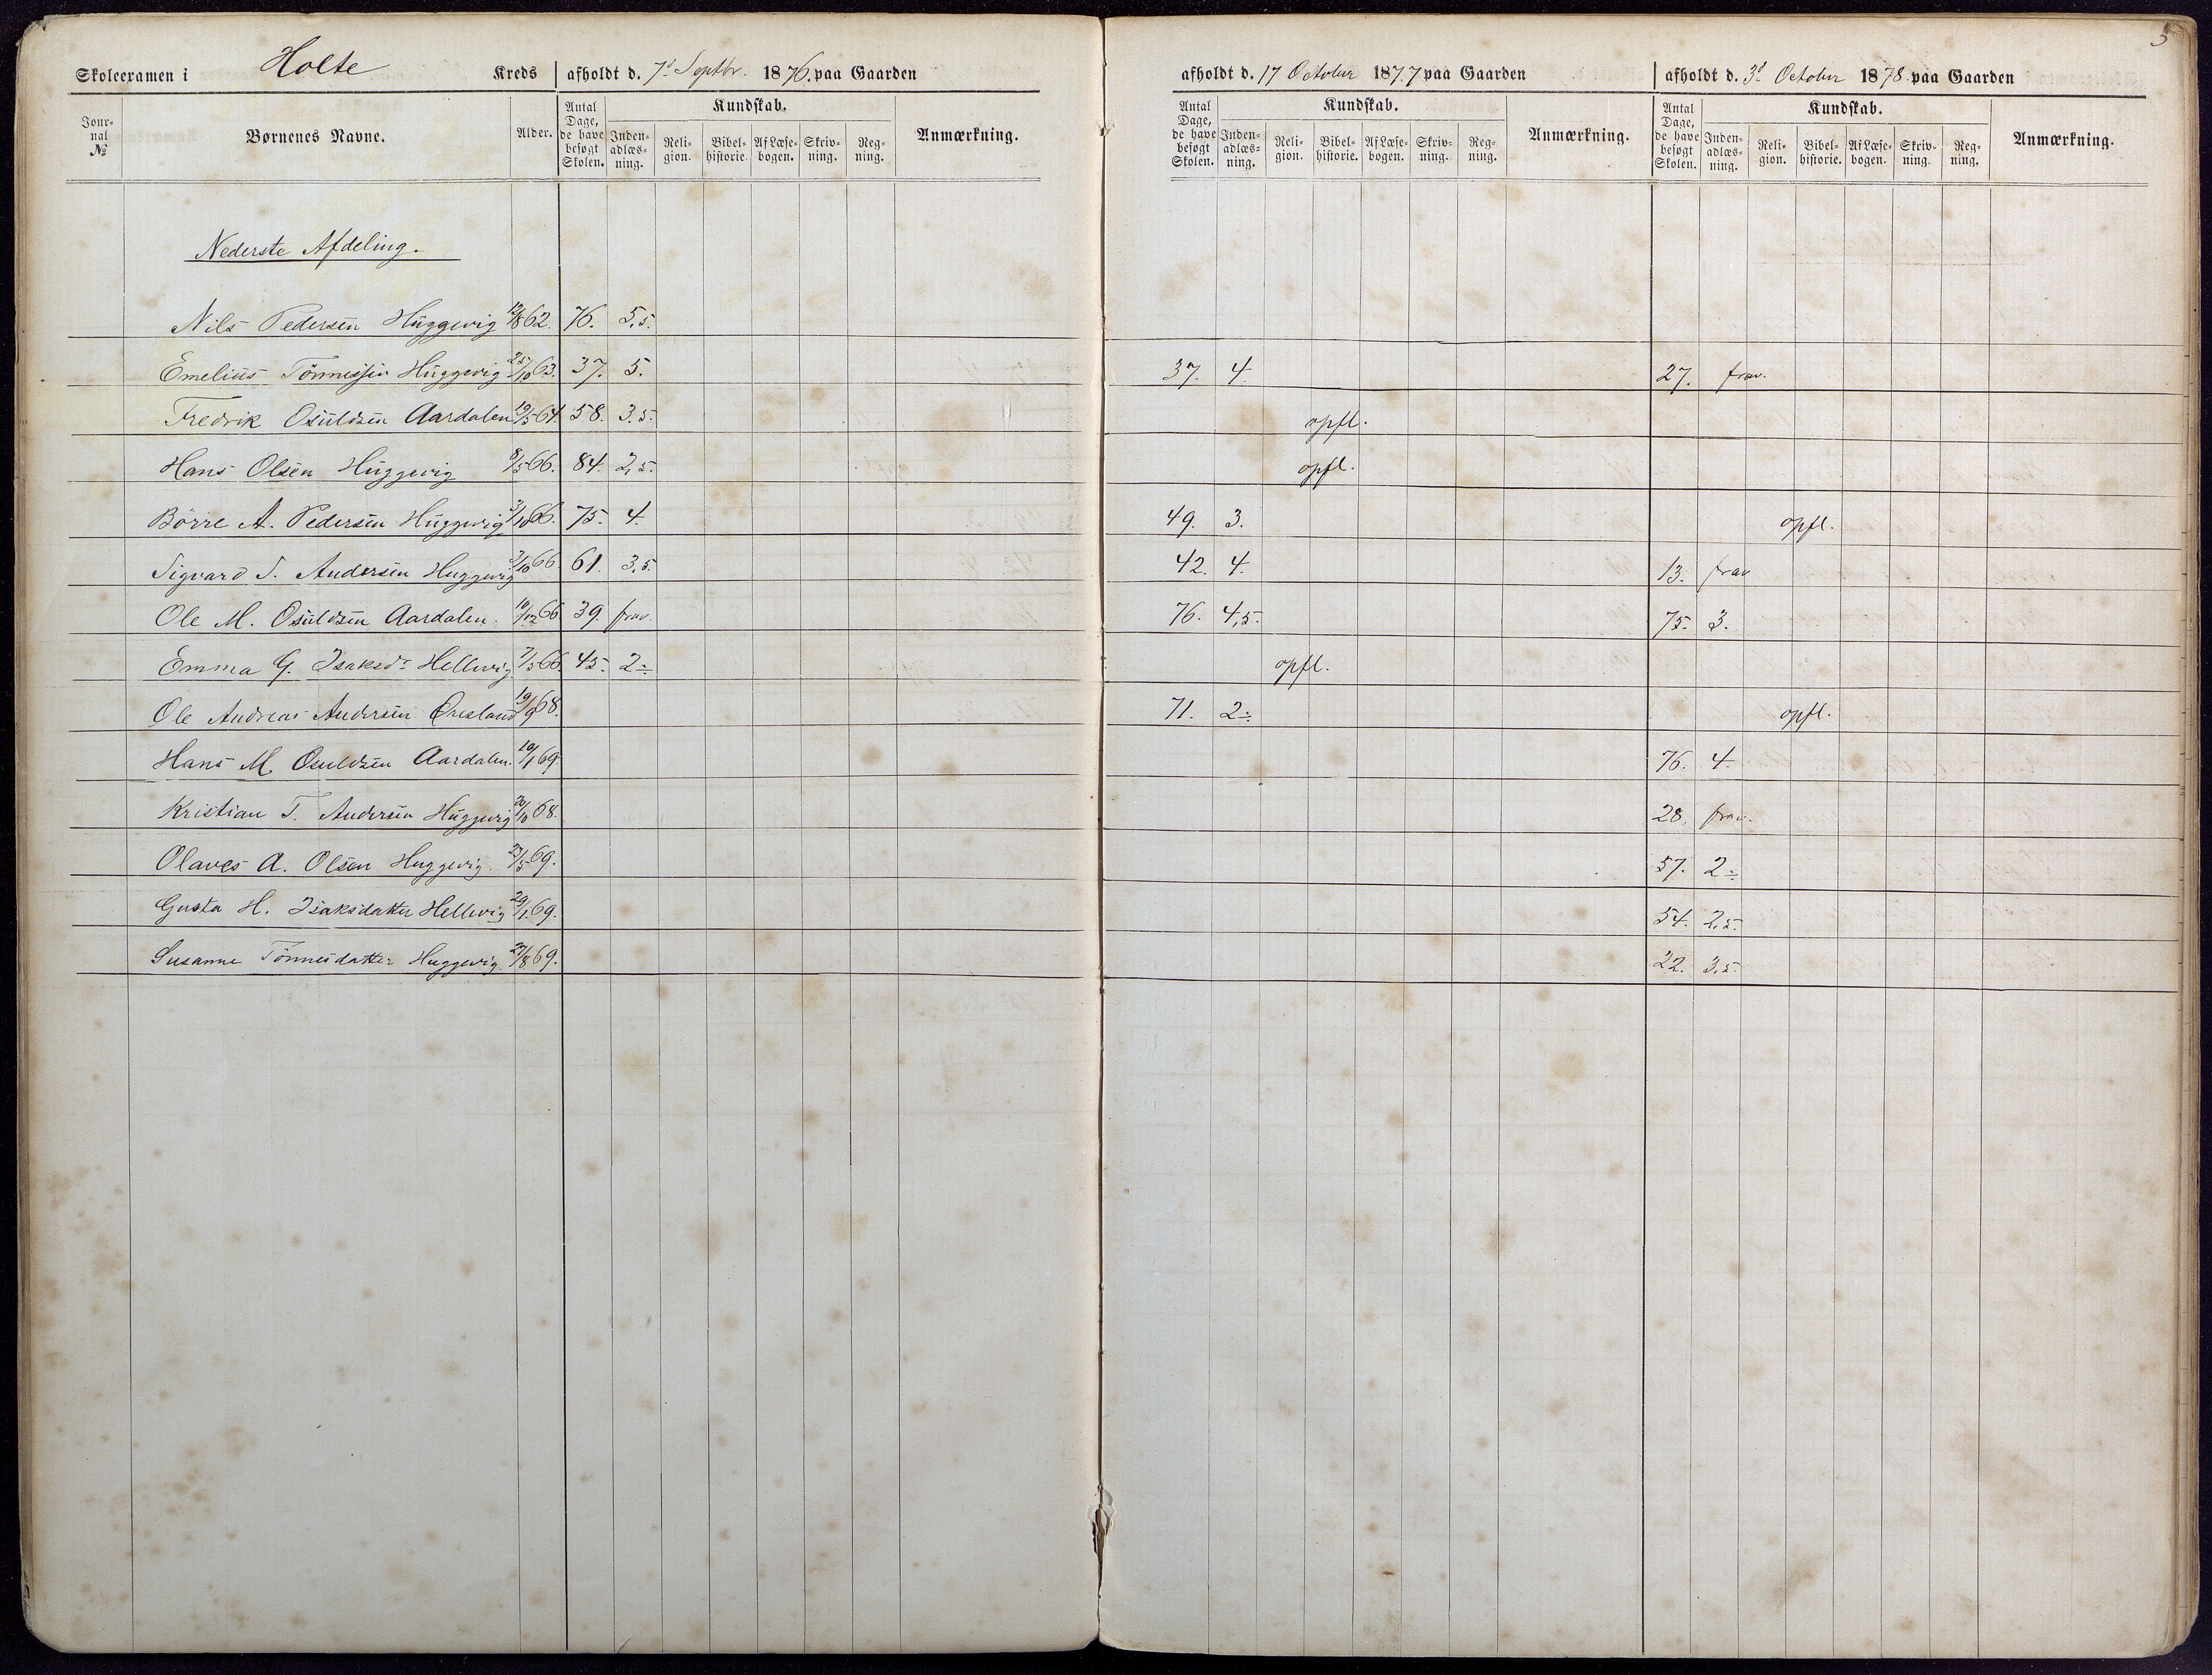 5
Skoleexamen i Holte Kreds afholdt d. 7d Septbr. 1876. paa Gaarden afholdt d. 17 October 1877 paa Gaarden afholdt d. 3d October 1878 paa Gaarden
Journal № Børnenes Navne. Alder. Antal Dage, de have besøgt Skolen. Kundskab. Indenadlæsning. Religion. Bibelhistorie. Af Læsebogen. Skrivning. Regning. Anmærkning. Antal Dage, de have besøgt Skolen. Kundskab. Indenadlæsning. Religion. Bibelhistorie. Af Læsebogen. Skrivning. Regning. Anmærkning. Antal Dage, de have besøgt Skolen. Kundskab. Indenadlæsning. Religion. Bibelhistorie. Af Læsebogen. Skrivning. Regning. Anmærkning.
Nederste Afdeling.
Nils Pedersen Huggevig 62. 76. 5,5.
Emelius Tönnessen Huggevig 25/10 63. 37. 5. 37. 4. 27. frav.
Fredrik Osuldsen Aardalen 19/5 64. 58. 3.5. opfl.
Hans Olsen Huggevig 8/5 66. 84. 2,5. opfl.
Börre A. Pedersen Huggevig 66. 75. 4. 49. 3. opfl.
Sigvard S. Andersen Huggevig 66. 61. 3,5. 42. 4. 13. frav
Ole M. Osuldsen Aardalen. 10/12 66 39. frav. 76. 4,5. 75. 3.
Emma G. Isaksdr Hellevig. 7/5 66. 45. 2÷ opfl.
Ole Andreas Andersen Øresland 19/9 68. 71. 2÷ opfl.
Hans M. Osuldsen Aardalen. 19/1 69. 76. 4.
Kristian T. Andersen Huggevig 68. 28. frav.
Olaves A. Olsen Huggevig. 23/5 69. 57. 2÷
Gusta H. Isaksdatter Hellevig 29/1 69. 54. 2,5.
Susanne Tönnesdatter Huggevig. 27/8 69. 22. 3,5.